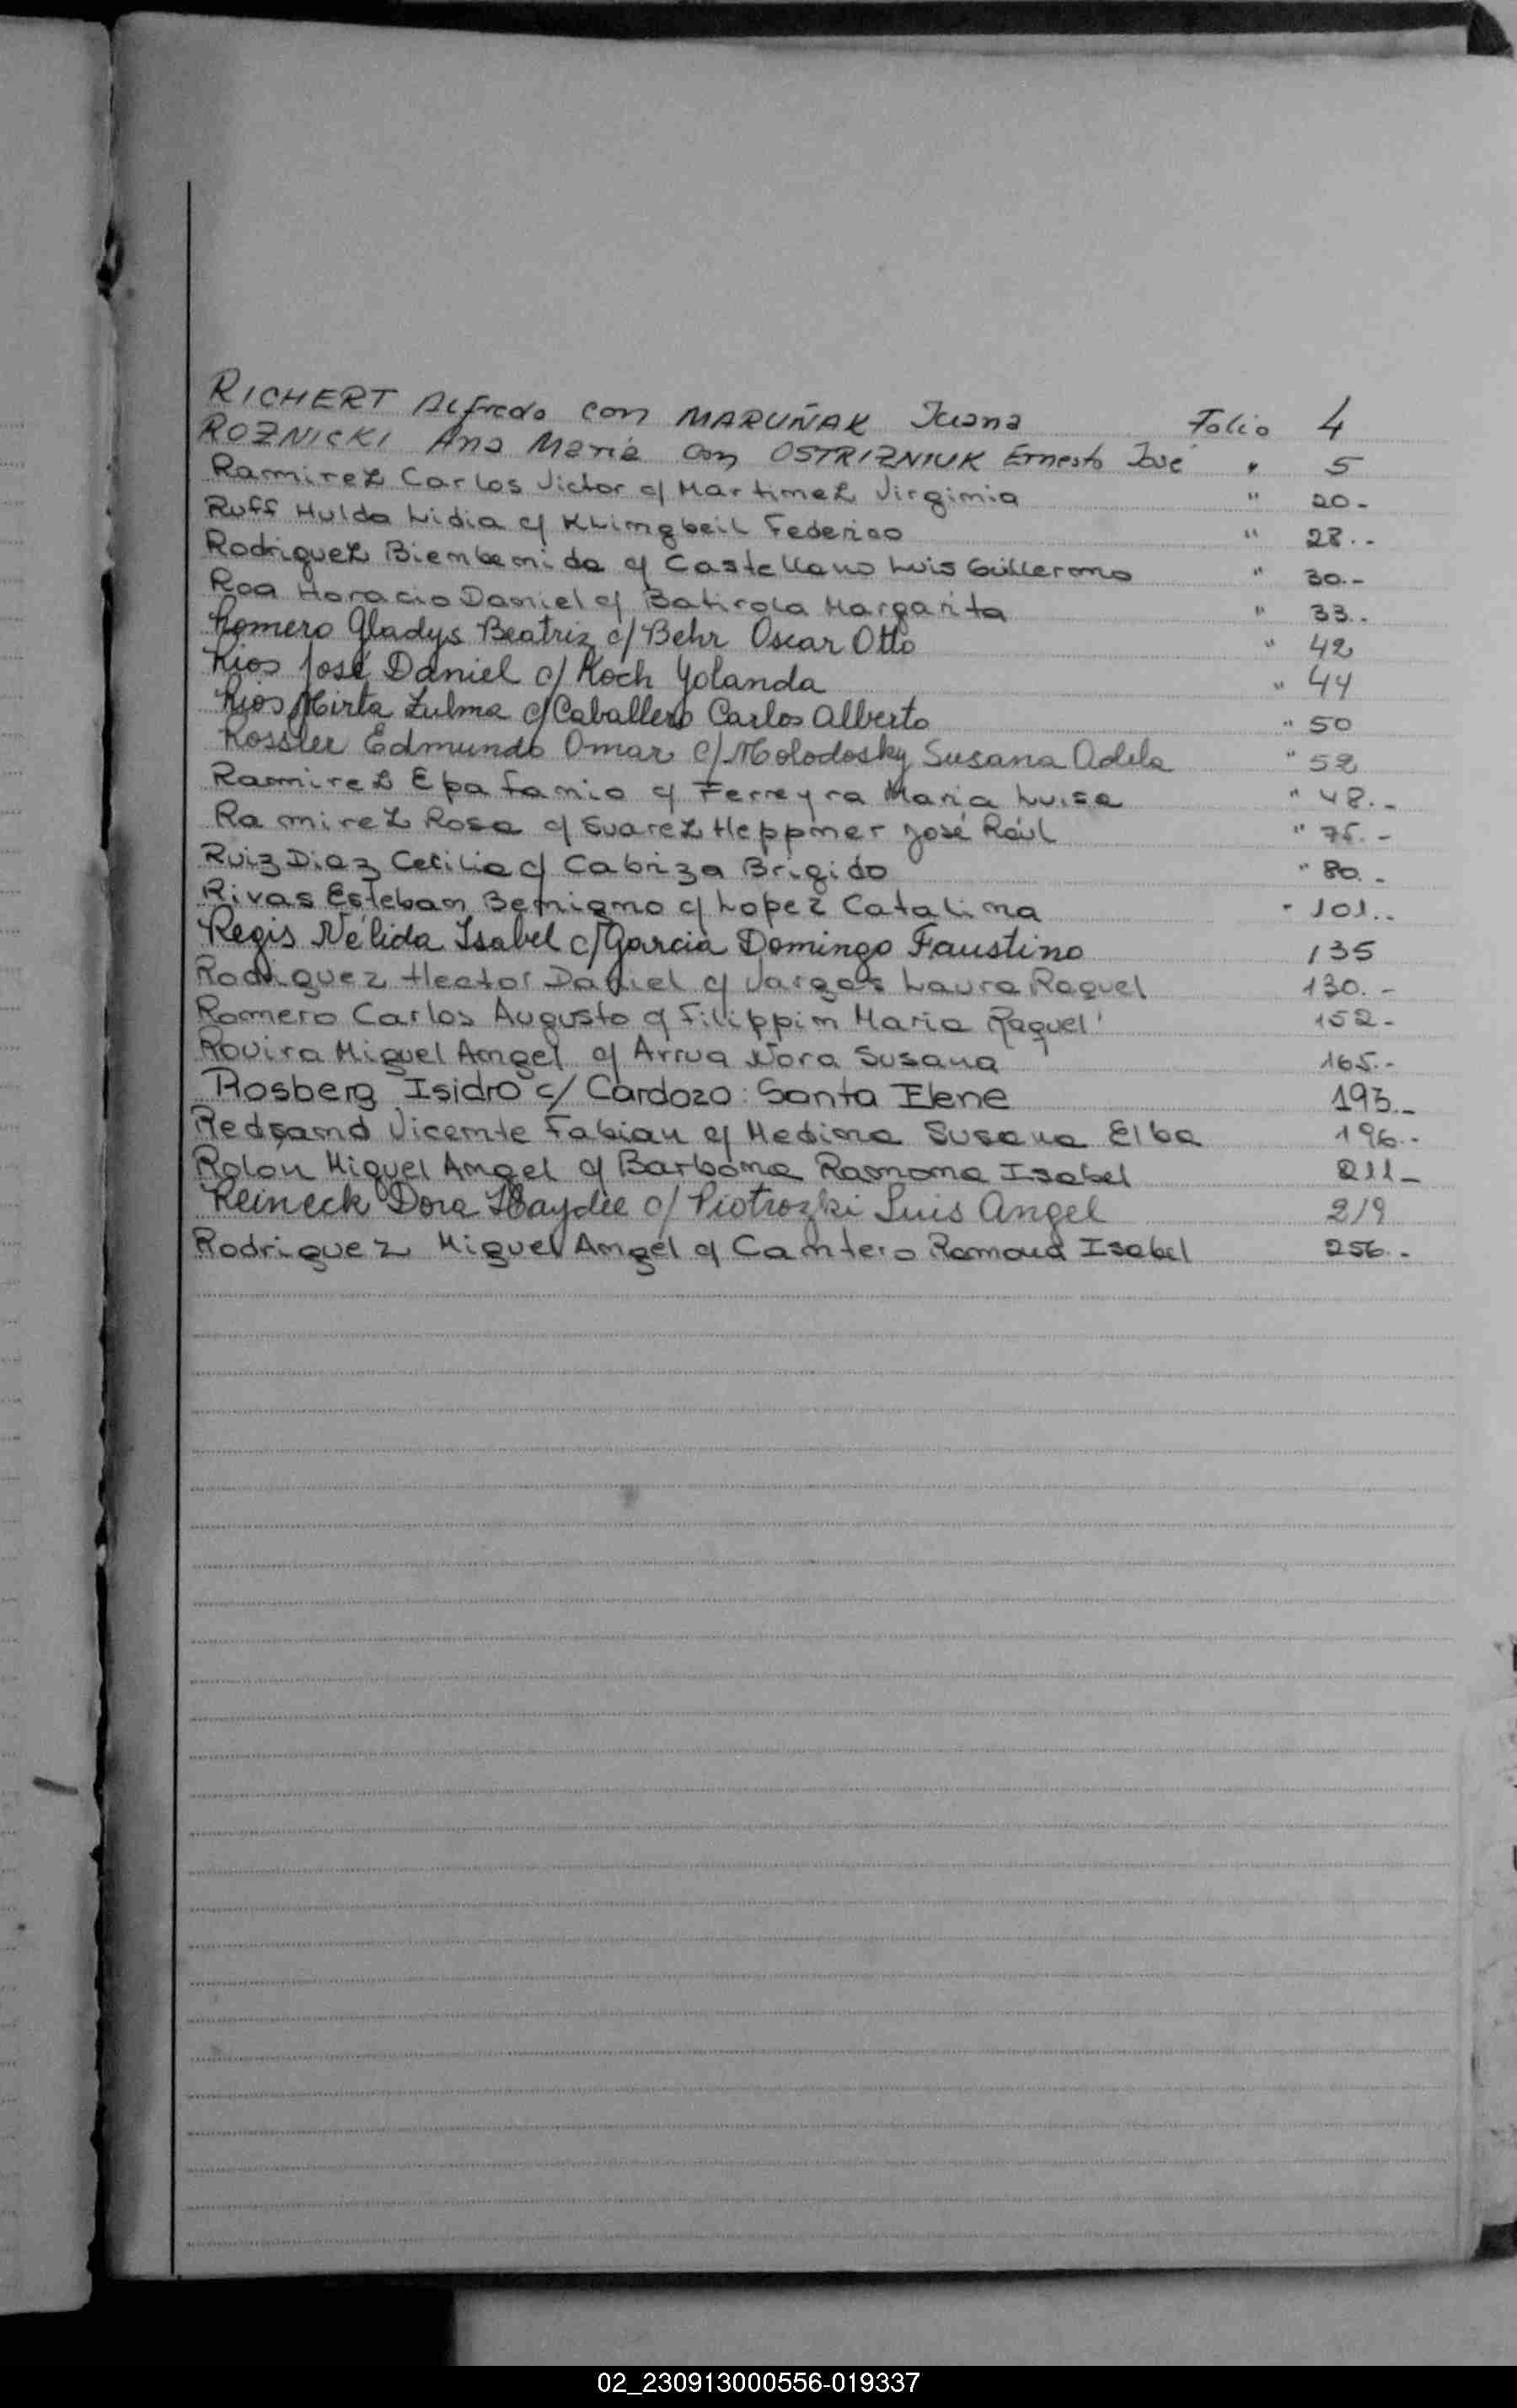 RICHERT Alfredo con MARUÑAK Juana Folio 4
ROZNICKI Ana María con OSTRIZNIUK Ernesto José " 5
Ramirez Carlos Victor c/ Martinez Virginia " 20.-
Ruff Hulda Lidia c/ Klingbeil Federico " 28..-
Rodriguez Bienbenida c/ Castellano Luis Guillermo " 30.-
Roa Horacio Daniel c/ Batirola Margarita " 33..
Romero Gladys Beatriz c/ Behr Oscar Otto " 42
Rios José Daniel c/ Koch Yolanda " 44
Rios Mirta Zulma c/ Caballero Carlos Alberto " 50
Rossler Edmundo Omar c/ Molodosky Susana Adela " 52
Ramirez Epafanio c/ Ferreyra Maria Luisa " 48..-
Ramirez Rosa c/ Suarez Heppner José Raúl " 75.-
Ruiz Diaz Cecilia c/ Cabriza Brigido " 80.-
Rivas Esteban Benigno c/ Lopez Catalina " 101..
Regis Nélida Isabel c/ Garcia Domingo Faustino 135
Rodriguez Hector Daniel c/ Vargas Laura Raquel 130.-
Romero Carlos Augusto c/ Filippin Maria Raquel 152-
Rovira Miguel Angel c/ Arrua Nora Susana 165.-
Rosberg Isidro c/ Cardozo Santa Elene 193.-
Redsand Vicente Fabian c/ Medina Susana Elba 196..
Rolón Miguel Angel c/ Barbona Ramona Isabel 211-
Reineck Dora Haydée c/ Piotrozki Luis Angel 219
Rodriguez Miguel Angel c/ Cantero Ramona Isabel 256.-
02_230913000556-019337